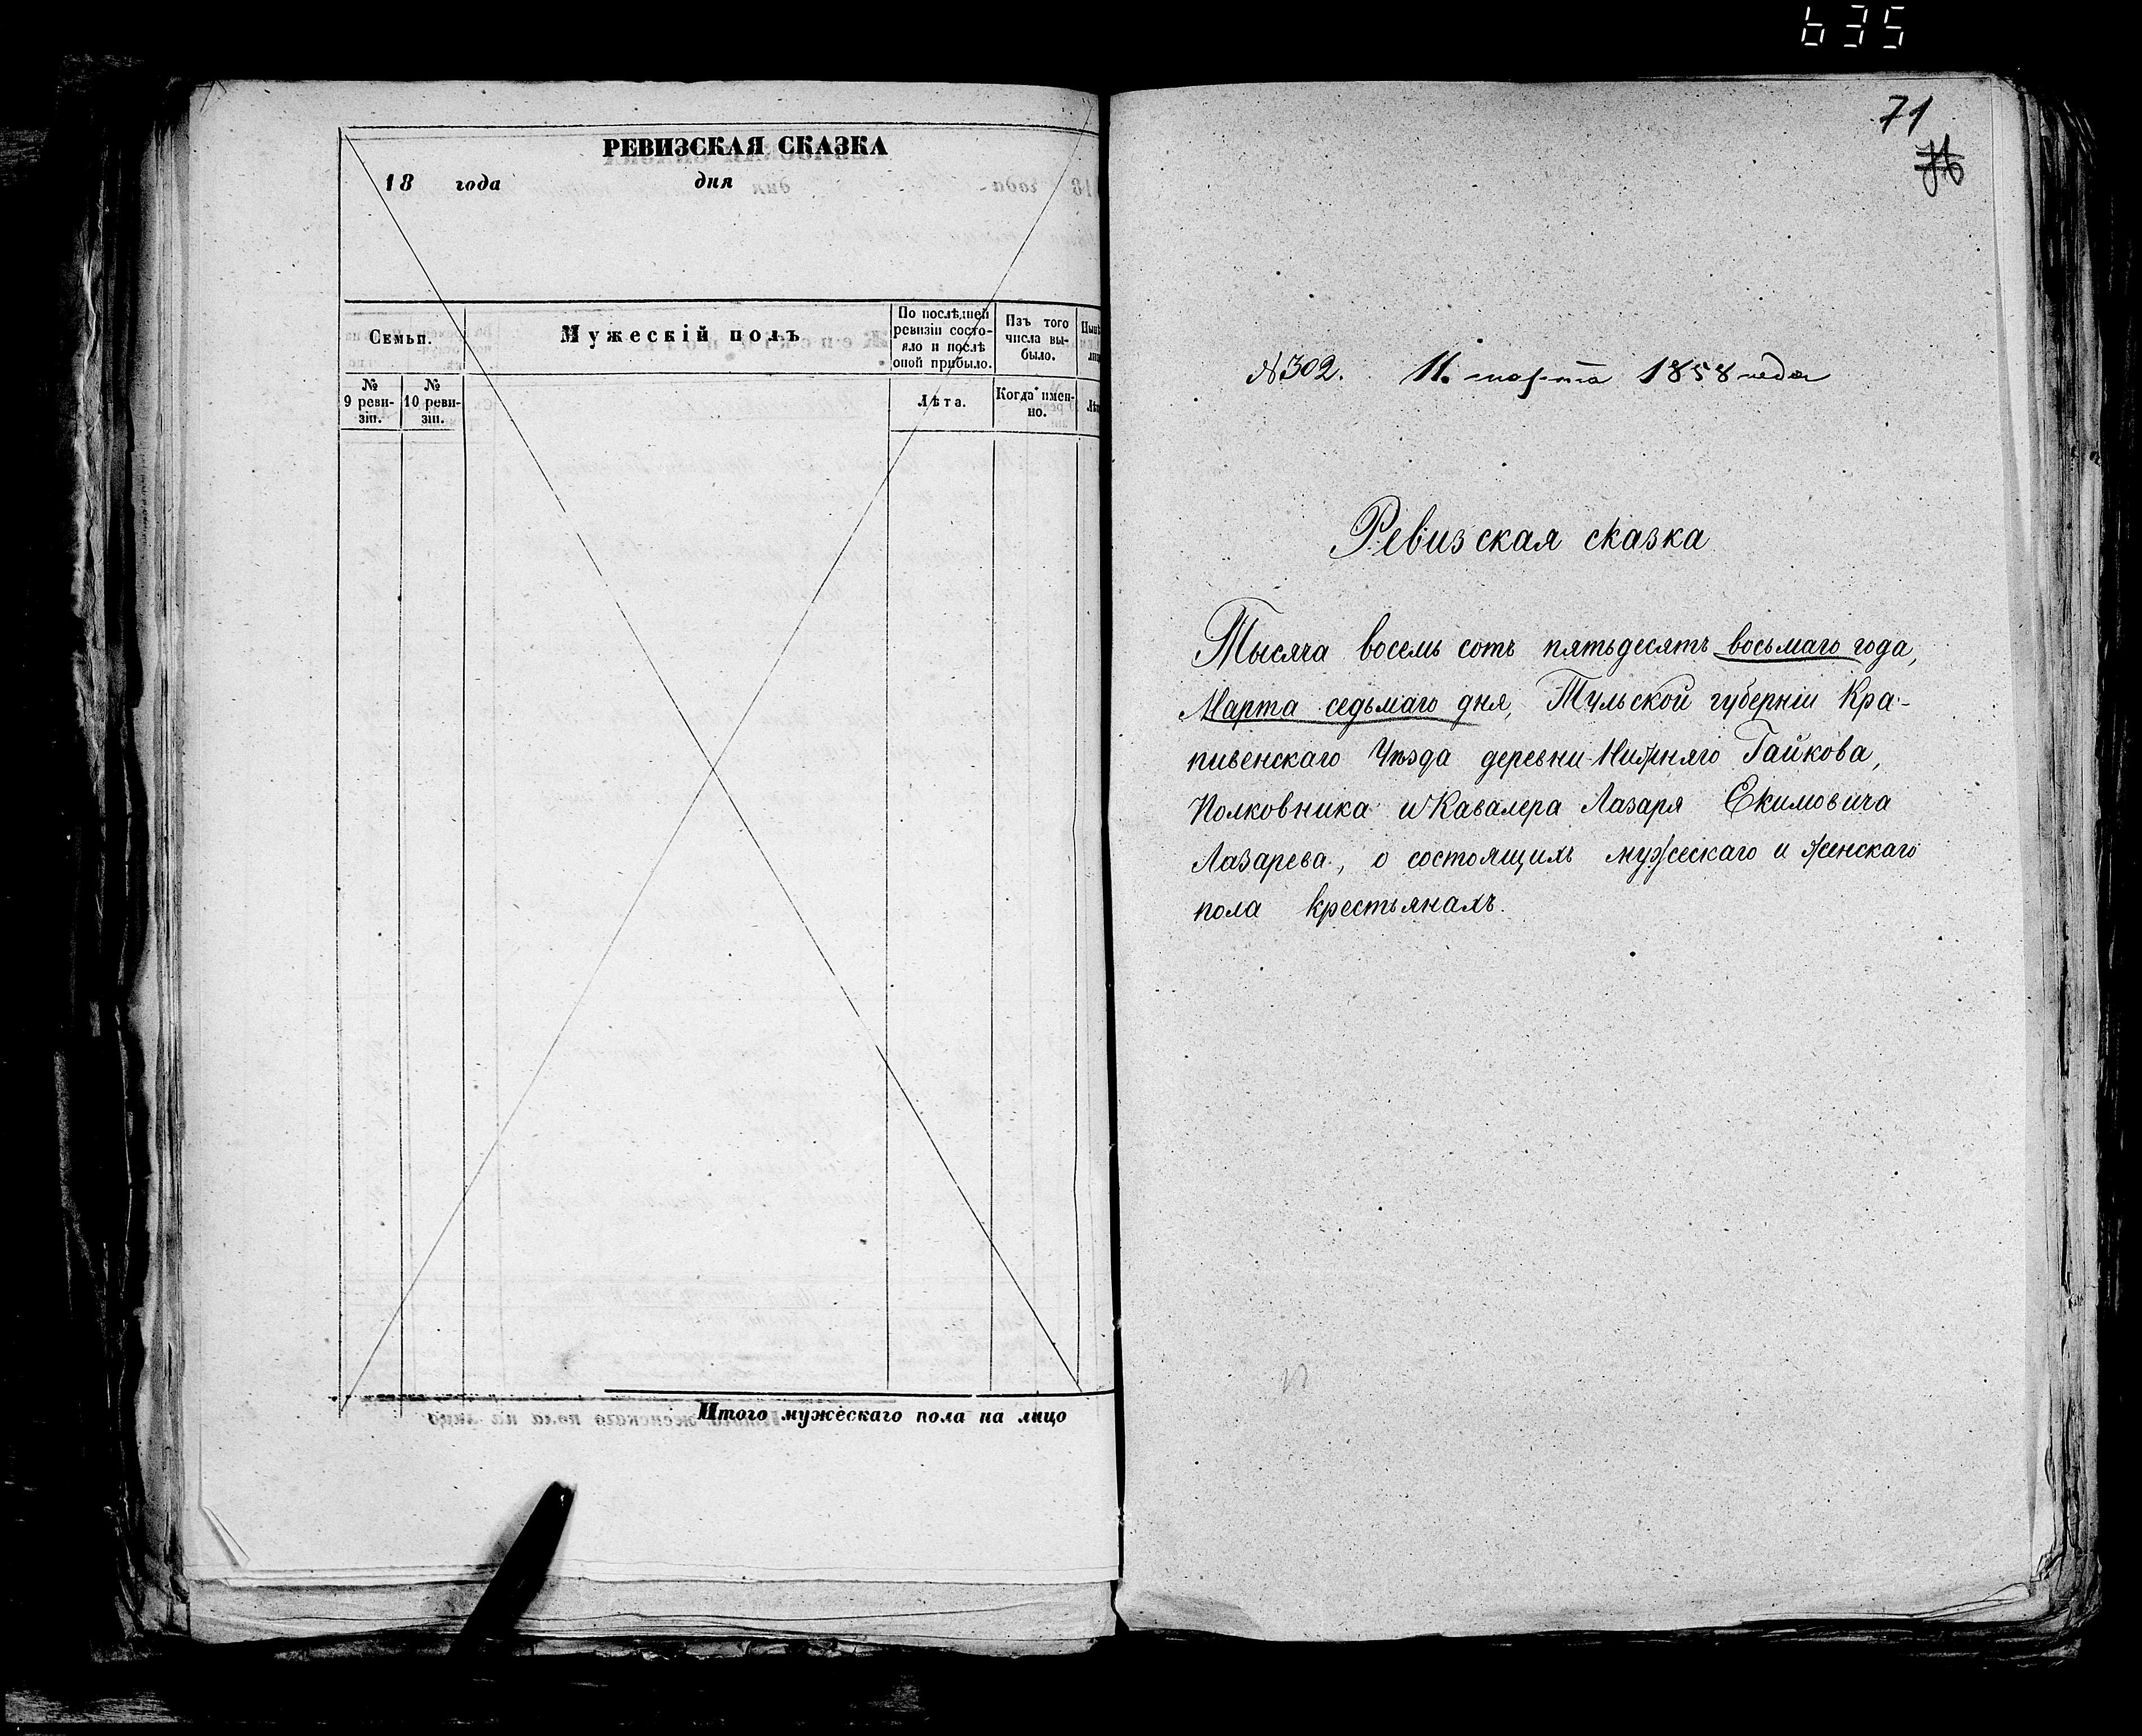 635
РЕВИЗСКАЯ СКАЗКА
18 года дня
Семьи.
Мужескій полъ
По послѣдней ревизіи состояло и послѣ оной прибыло.
Изъ того числа выбыло.
№ 9 ревизіи.
№ 10 ревизіи.
Лѣта.
Когда имен-
но.
Итого мужескаго пола на лицо
71
№ 302. 11. марта 1858 года
Ревизская сказка
Тысяча восемь сотъ пятьдесятъ восьмаго года,
Марта седьмаго дня, Тульской губерніи Кра-
пивенскаго Уѣзда деревни Нижняго Гайкова,
Полковника и Кавалера Лазаря Екимовича
Лазарева, о состоящихъ мужескаго и женскаго
пола крестьянахъ.